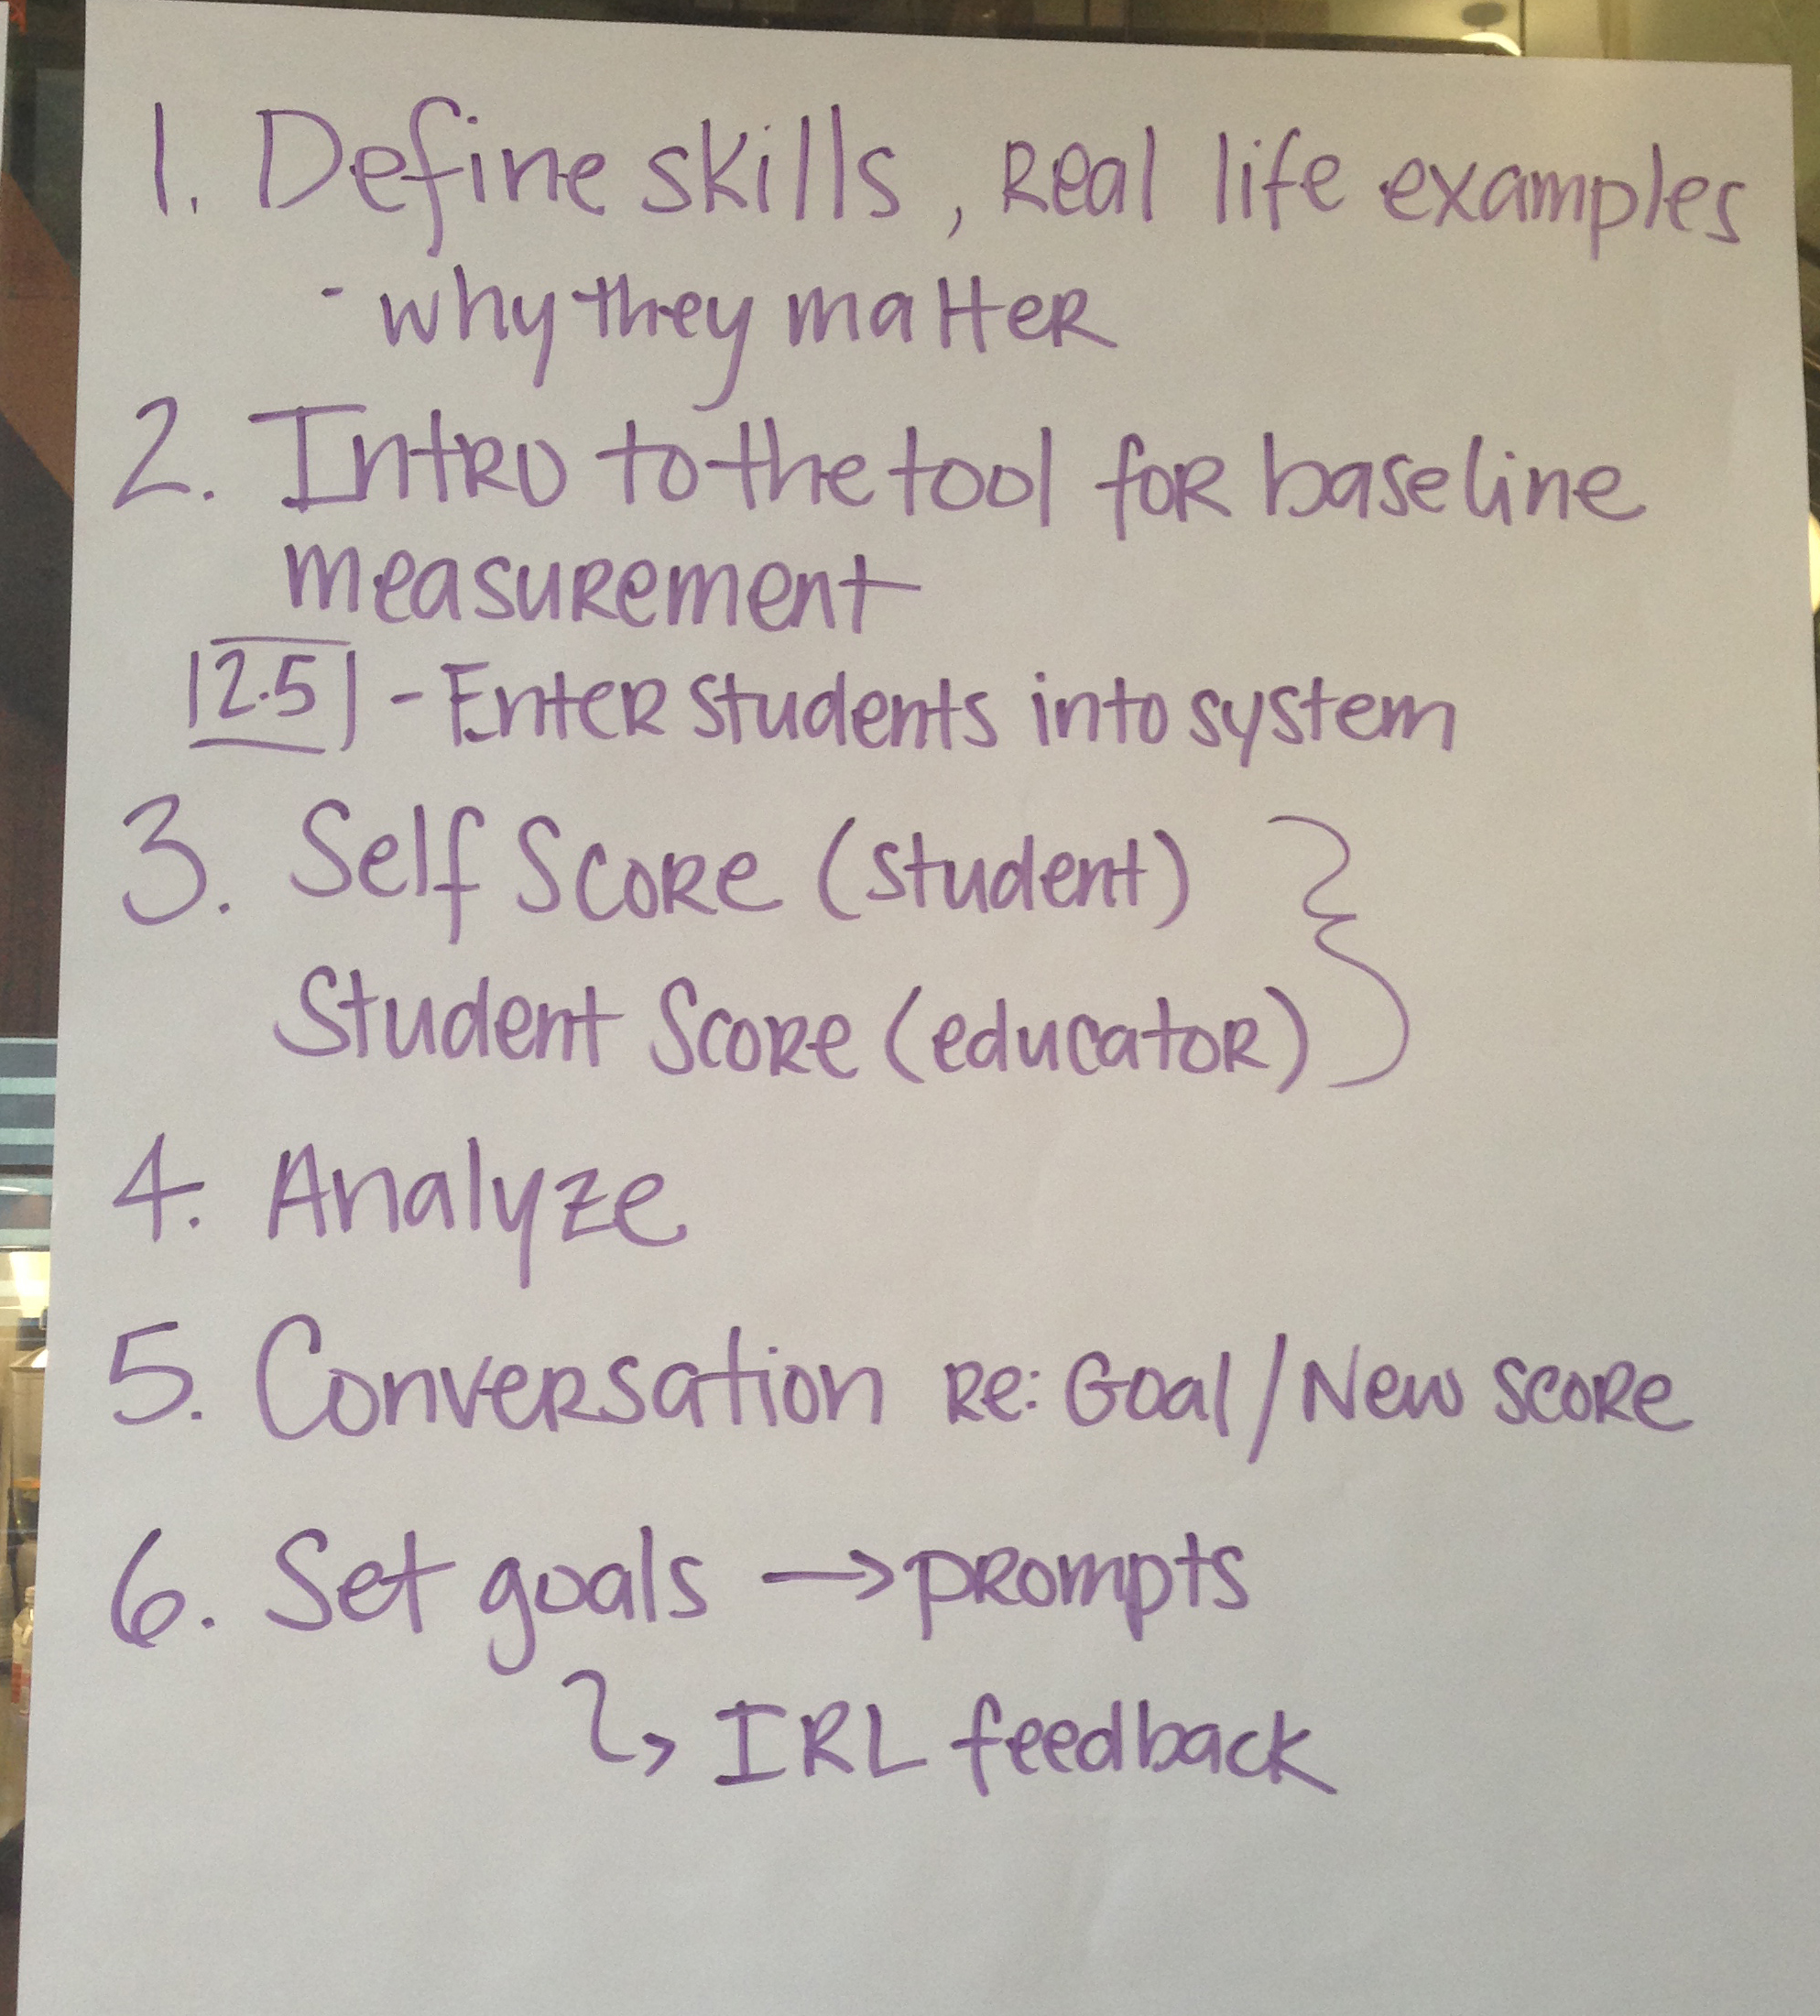 1. Define skills, Real life examples
- why they matter
2. Intro to the tool for baseline
measurement
2.5 - Enter students into system
3. Self Score (student) }
Student Score (educator)
4. Analyze
5. Conversation Re: Goal / New score
6. Set goals → prompts
↳ IRL feedback